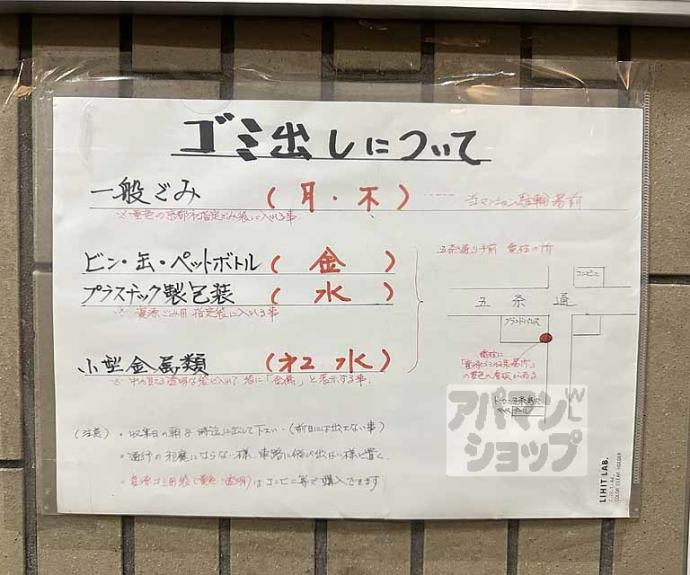 ゴミ出しについて
一般ごみ (月・木) 当マンション駐輪場前
※ 黄色の京都市指定ごみ袋に入れる事
ビン・缶・ペットボトル (金)
プラスチック製包装 (水)
※ 資源ごみ用指定袋に入れる事
小型金属類 (水)
※ 中の見える透明な袋に入れて 袋に「金属」と表示する事.
五条通り手前 電柱の所
コンビニ
五条通
電柱に
の黄色い看板がある
(注意) ・収集日の朝8時迄に出して下さい.(前日には出さない事)
・通行の邪魔にならない様,車路に 出ない様に置く.
・資源ゴミ用袋(黄色・透明)はコンビニ等で購入できます
アパマン
ショップ
LIHIT LAB.